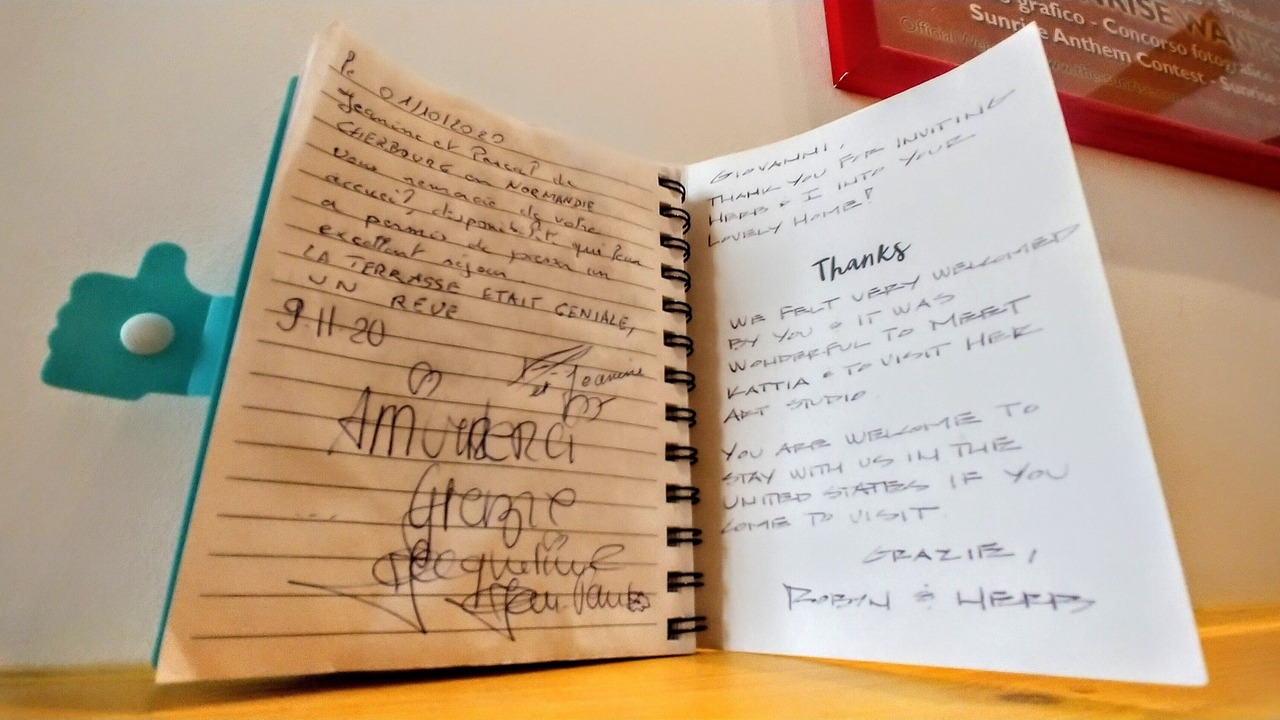 Le 01/10/2020
Jeanine et Pascal de
CHERBOURG en NORMANDIE
vous remercie de votre
accueil, disponibilité qui leur
a permis de passer un
excellent séjour
LA TERRASSE ETAIT GENIALE,
UN REVE
9.11.20
Jeanine
Grazie
Jacqueline
Jean Paul
GIOVANNI,
THANK YOU FOR INVITING
HERB & I INTO YOUR
LOVELY HOME!
Thanks
WE FELT VERY WELCOMED
BY YOU & IT WAS
WONDERFUL TO MEET
KATTIA & TO VISIT HER
ART STUDIO
YOU ARE WELCOME TO
STAY WITH US IN THE
UNITED STATES IF YOU
COME TO VISIT
GRAZIE,
ROBYN & HERB
NRISE WANT
grafico - Concorso fotografico
Sunrise Anthem Contest - Sunrise
Official We